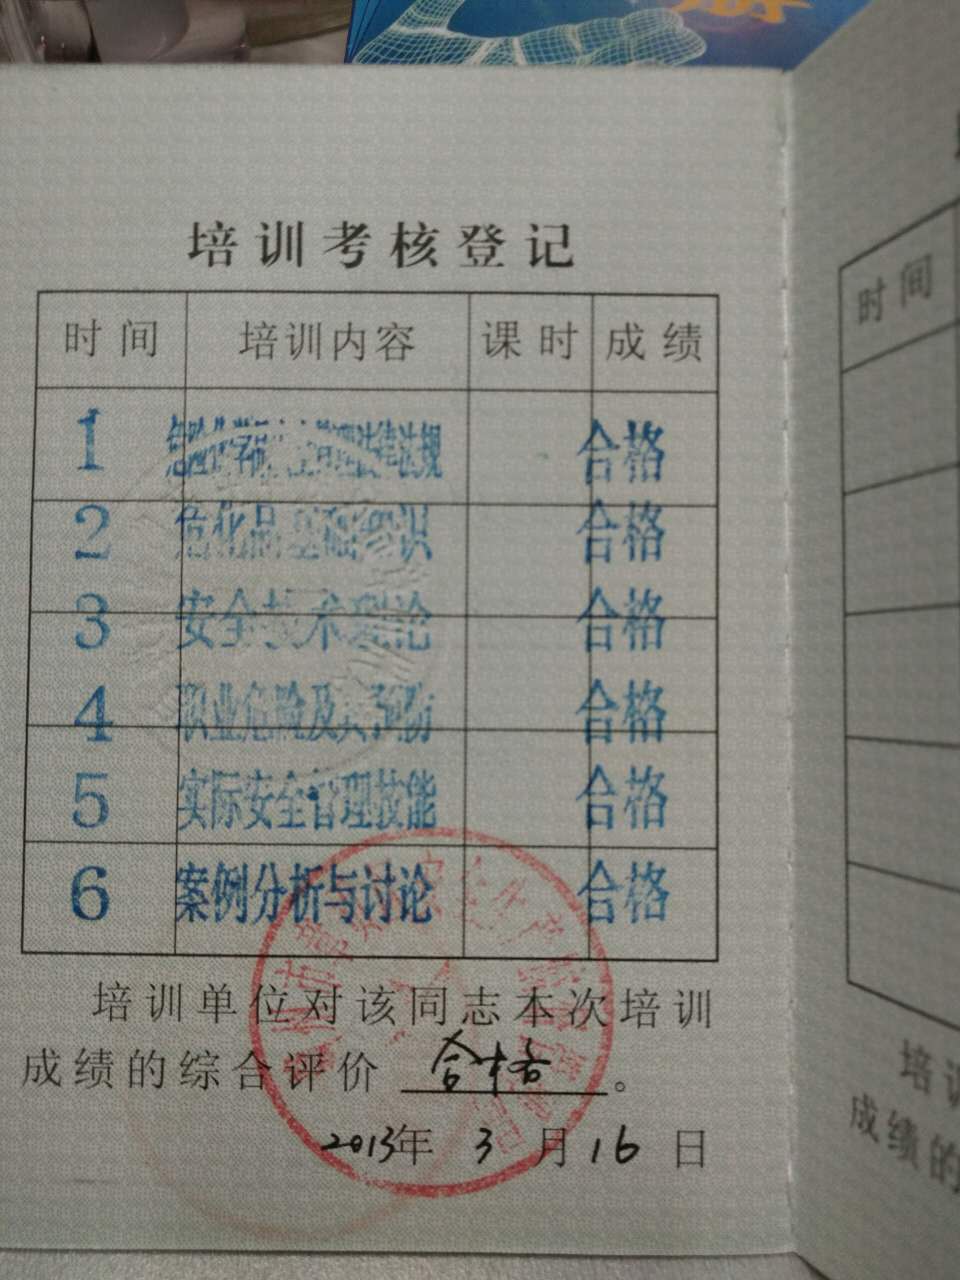 培训考核登记
时间 培训内容 课时 成绩
1 危险化学品 管理法律法规 合格
2 危化品基础知识 合格
3 安全技术理论 合格
4 职业危险及其预防 合格
5 实际安全管理技能 合格
6 案例分析与讨论 合格
培训单位对该同志本次培训
成绩的综合评价 合格。
2013年3月16日
时间
培训
成绩的